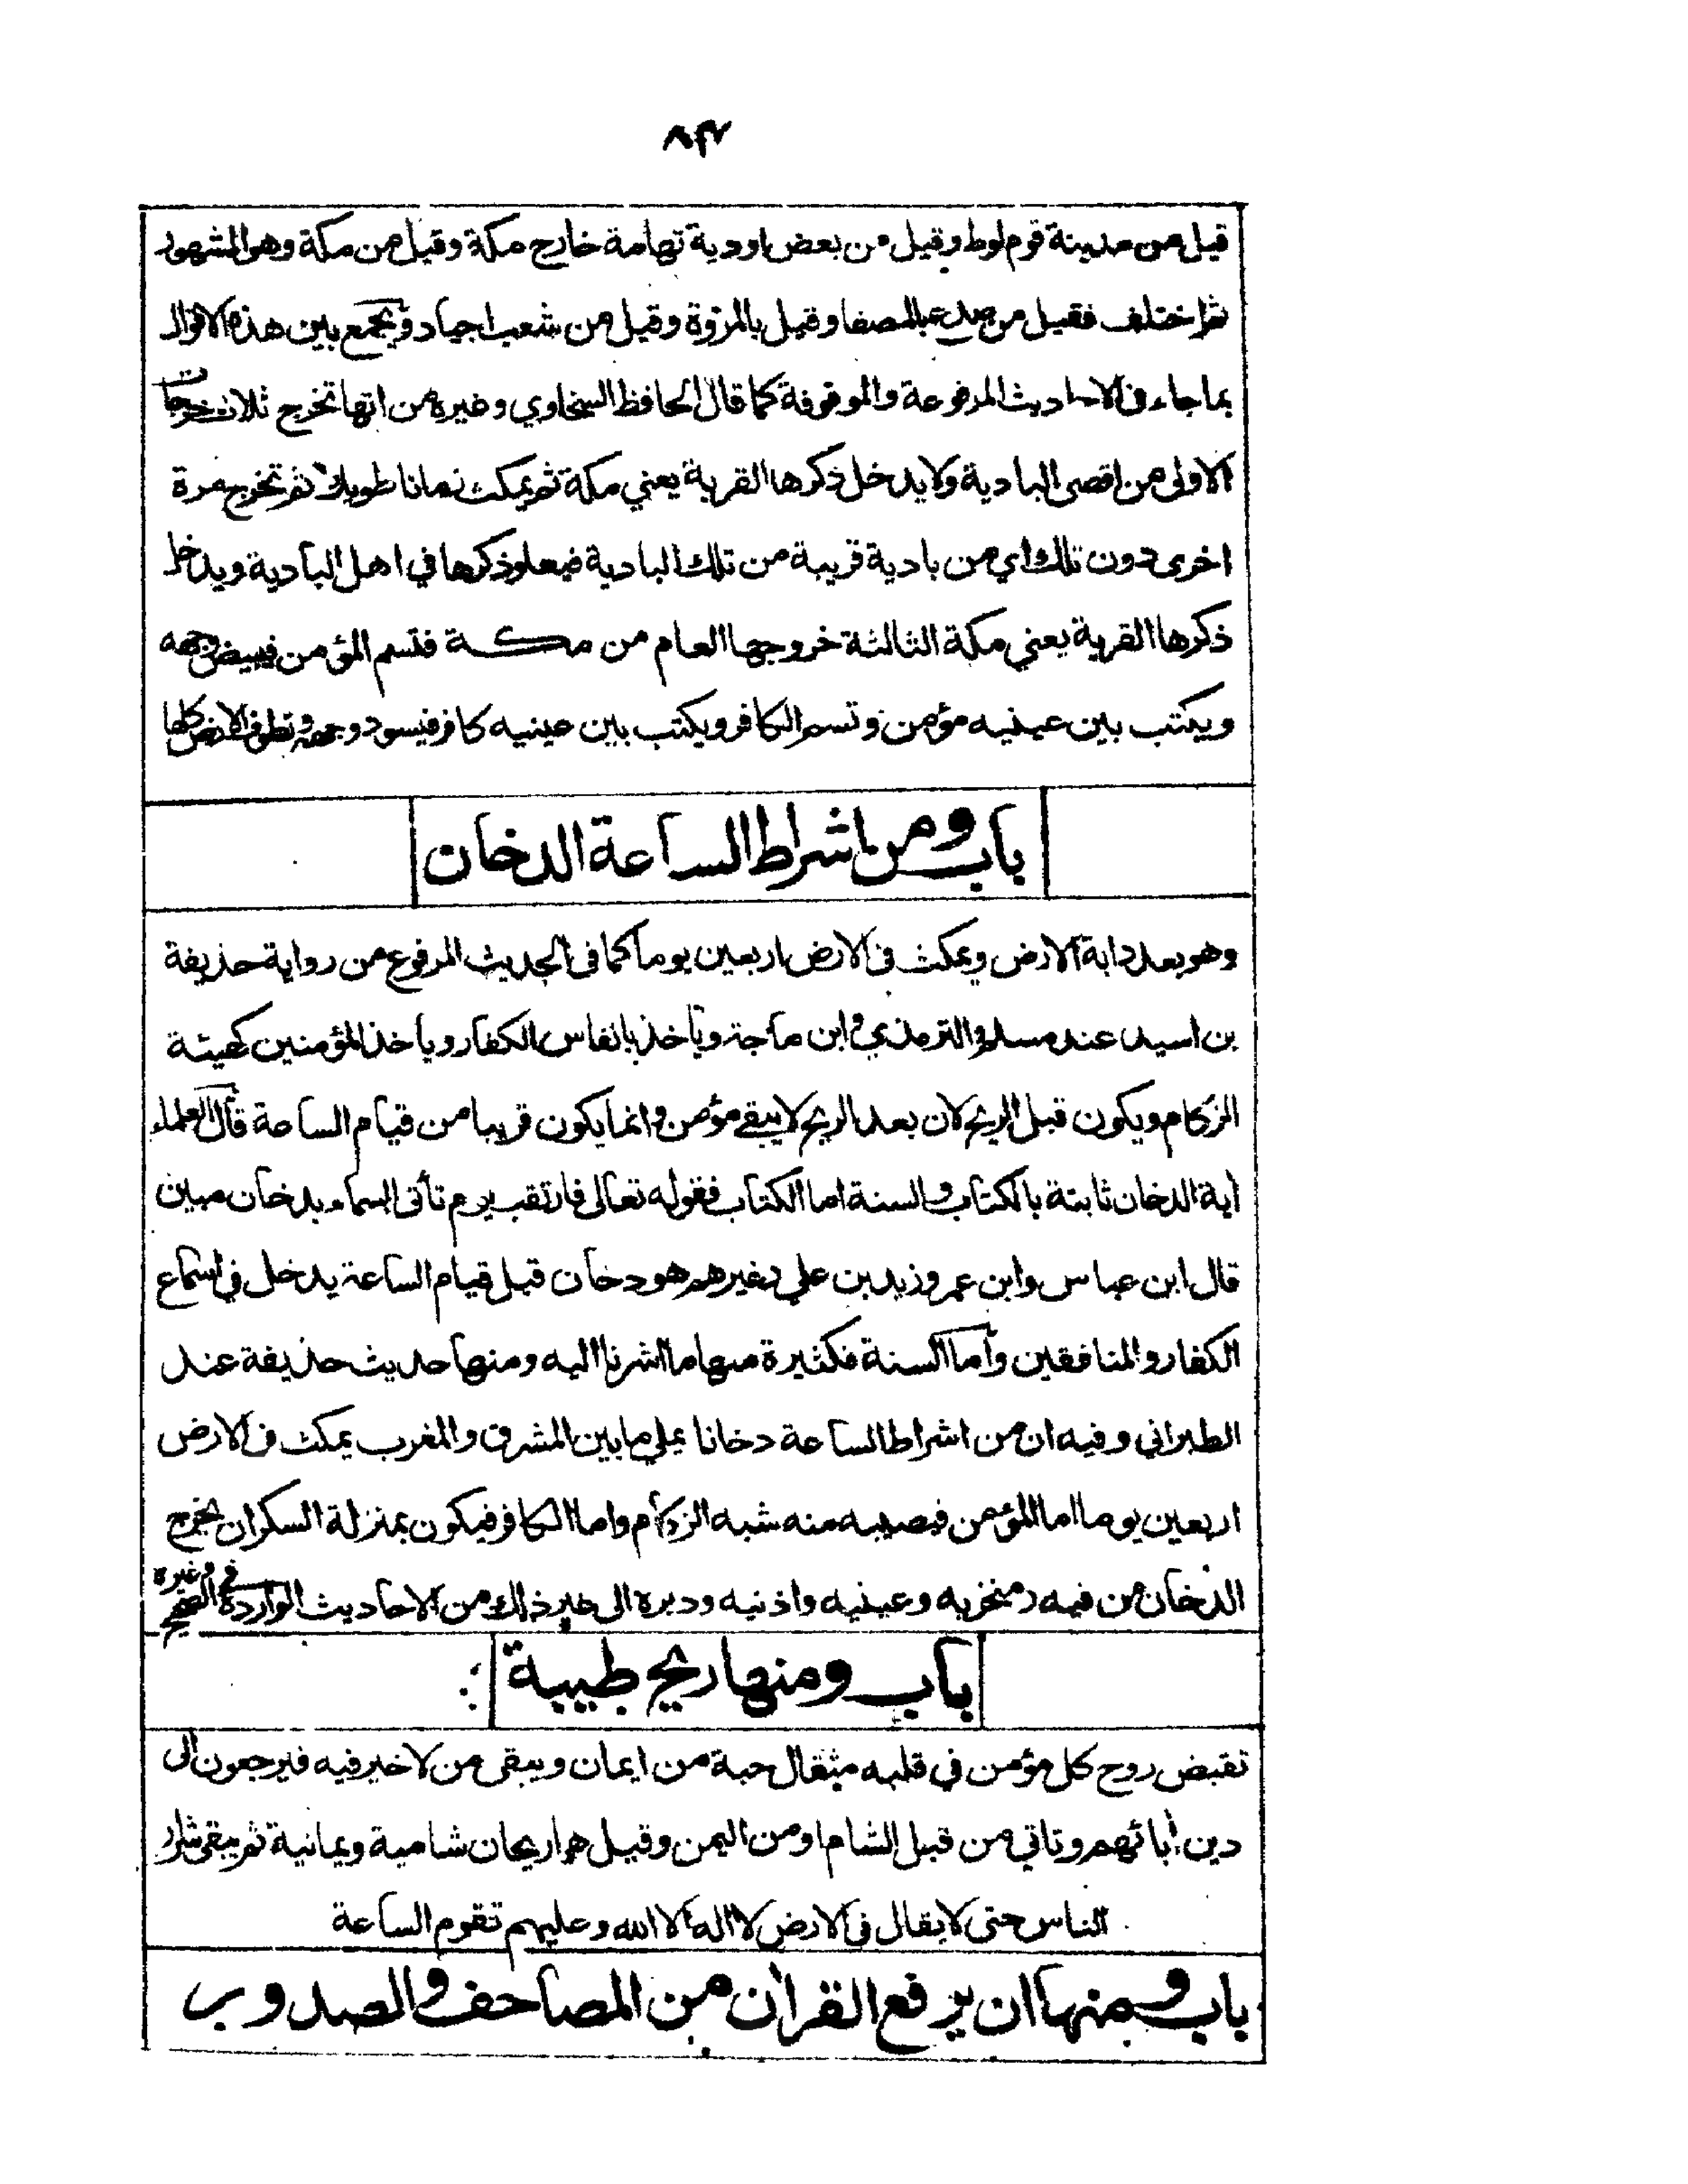 قيل من مدينة قوم لوط وقيل من بعض اودية تهامة خارج مكة وقيل من مكة وهو المشهور
ثم اختلف فقيل من صدع بالصفا وقيل بالمروة وقيل من شعب اجياد ويجمع بين هذه الاقوال
بما جاء في الاحاديث المرفوعة والموقوفة كما قال الحافظ السخاوي وغيره من انها تخرج ثلاث خرجات
الاولى من اقصى البادية ولا يدخل ذكرها القرية يعني مكة ثم يمكث زمانا طويلا ثم تخرج مرة
اخرى دون تلك اي من بادية قريبة من تلك البادية فيعلو ذكرها في اهل البادية ويدخل
ذكرها القرية يعني مكة الثالثة خروجها العام من مكة فتسم المؤمن فيبيض وجهه
ويكتب بين عينيه مؤمن وتسم الكافر ويكتب بين عينيه كافر فيسود وجهه وتطوف الارض كلها
باب ومن اشراط الساعة الدخان
وهو بعد دابة الارض ويمكث في الارض اربعين يوما كما في الحديث المرفوع من رواية حذيفة
بن اسيد عند مسلم والترمذي وابن ماجة ويأخذ بانفاس الكفار ويأخذ المؤمنين كهيئة
الزكام ويكون قبل الريح لان بعد الريح لا يبقى مؤمن وانما يكون قريبا من قيام الساعة قال العلماء
أية الدخان ثابتة بالكتاب والسنة اما الكتاب فقوله تعالى فارتقب يوم تأتي السماء بدخان مبين
قال ابن عباس وابن عمر وزيد بن علي وغيرهم هو دخان قبل قيام الساعة يدخل في اسماع
الكفار والمنافقين وأما السنة فكثيرة منها ما اشرنا اليه ومنها حديث حذيفة عند
الطبراني وفيه ان من اشراط الساعة دخانا يملي ما بين المشرق والمغرب يمكث في الارض
اربعين يوما اما المؤمن فيصيبه منه شبه الزكام واما الكافر فيكون بمنزلة السكران يخرج
الدخان من فيه ومنخريه وعينيه واذنيه ودبره الى غير ذلك من الاحاديث الواردة في الصحيح وغيره
باب ومنها ريح طيبة
تقبض روح كل مؤمن في قلبه مثقال حبة من ايمان ويبقى من لا خير فيه فيرجعون الى
دين أبائهم وتاتي من قبل الشام او من اليمن وقيل هما ريحان شامية ويمانية ثم يبقى شرار
الناس حتى لا يقال في الارض لا اله الا الله وعليهم تقوم الساعة
باب ومنها ان يرفع القرأن من المصاحف والصدور